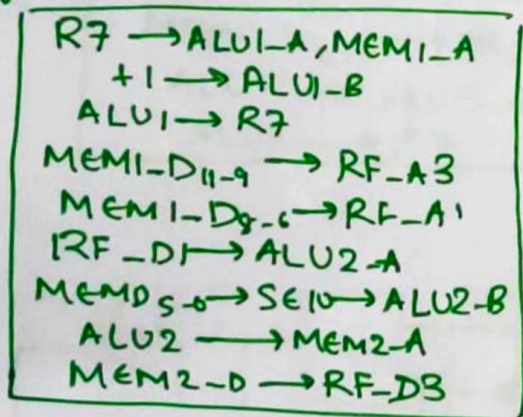 R7 → ALU1-A, MEM1-A
+1 → ALU1-B
ALU1 → R7
MEM1-D11-9 → RF-A3
MEM1-D8-6 → RF-A1
RF-D1 → ALU2-A
MEMD5-0 → SE10 → ALU2-B
ALU2 → MEM2-A
MEM2-D → RF-D3